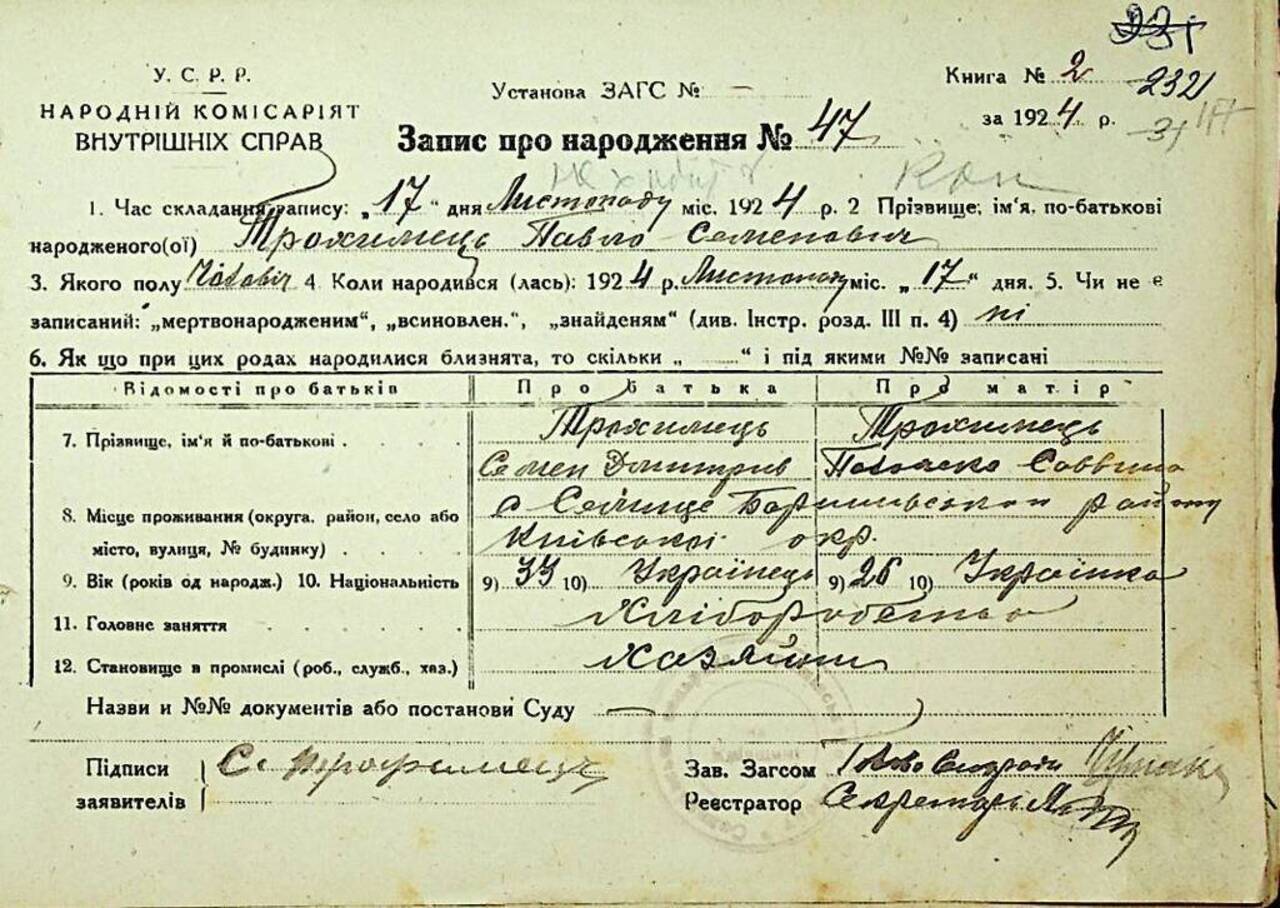 231
У. С. Р. Р.
НАРОДНІЙ КОМІСАРІЯТ
ВНУТРІШНІХ СПРАВ
Установа ЗАГС № –
Книга № 2 232
за 1924 р.
Запис про народження № 47
1. Час складання запису: „17“ дня Листопаду міс. 1924 р. 2 Прізвище, ім'я, по-батькові
народженого(ої) Трохимець Павло Семенович
3. Якого полу Чоловіч 4. Коли народився (лась): 1924 р. Листопад міс. „17“ дня. 5. Чи не є
записаний: „мертвонародженим“, „всиновлен.“, „знайденям“ (див. Інстр. розд. III п. 4) ні
6. Як що при цих родах народилися близнята, то скільки „ “ і під якими №№ записані
Відомості про батьків Про батька Про матір
7. Прізвище, ім'я й по-батькові Трохимець Трохимець
Семен Дмитрів Саввина
8. Місце проживання (округа, район, село або с Селище Баришівського району
місто, вулиця, № будинку) Київської окр.
9. Вік (років од народж.) 10. Національність 9) 33 10) Українець 9) 26 10) Українка
11. Головне заняття Хліборобство
12. Становище в промислі (роб., служб., хаз.) Хазяйни
Назви и №№ документів або постанови Суду —
Підписи С. Трофимець Зав. Загсом Голова Сельради
заявителів Реєстратор Секретарь